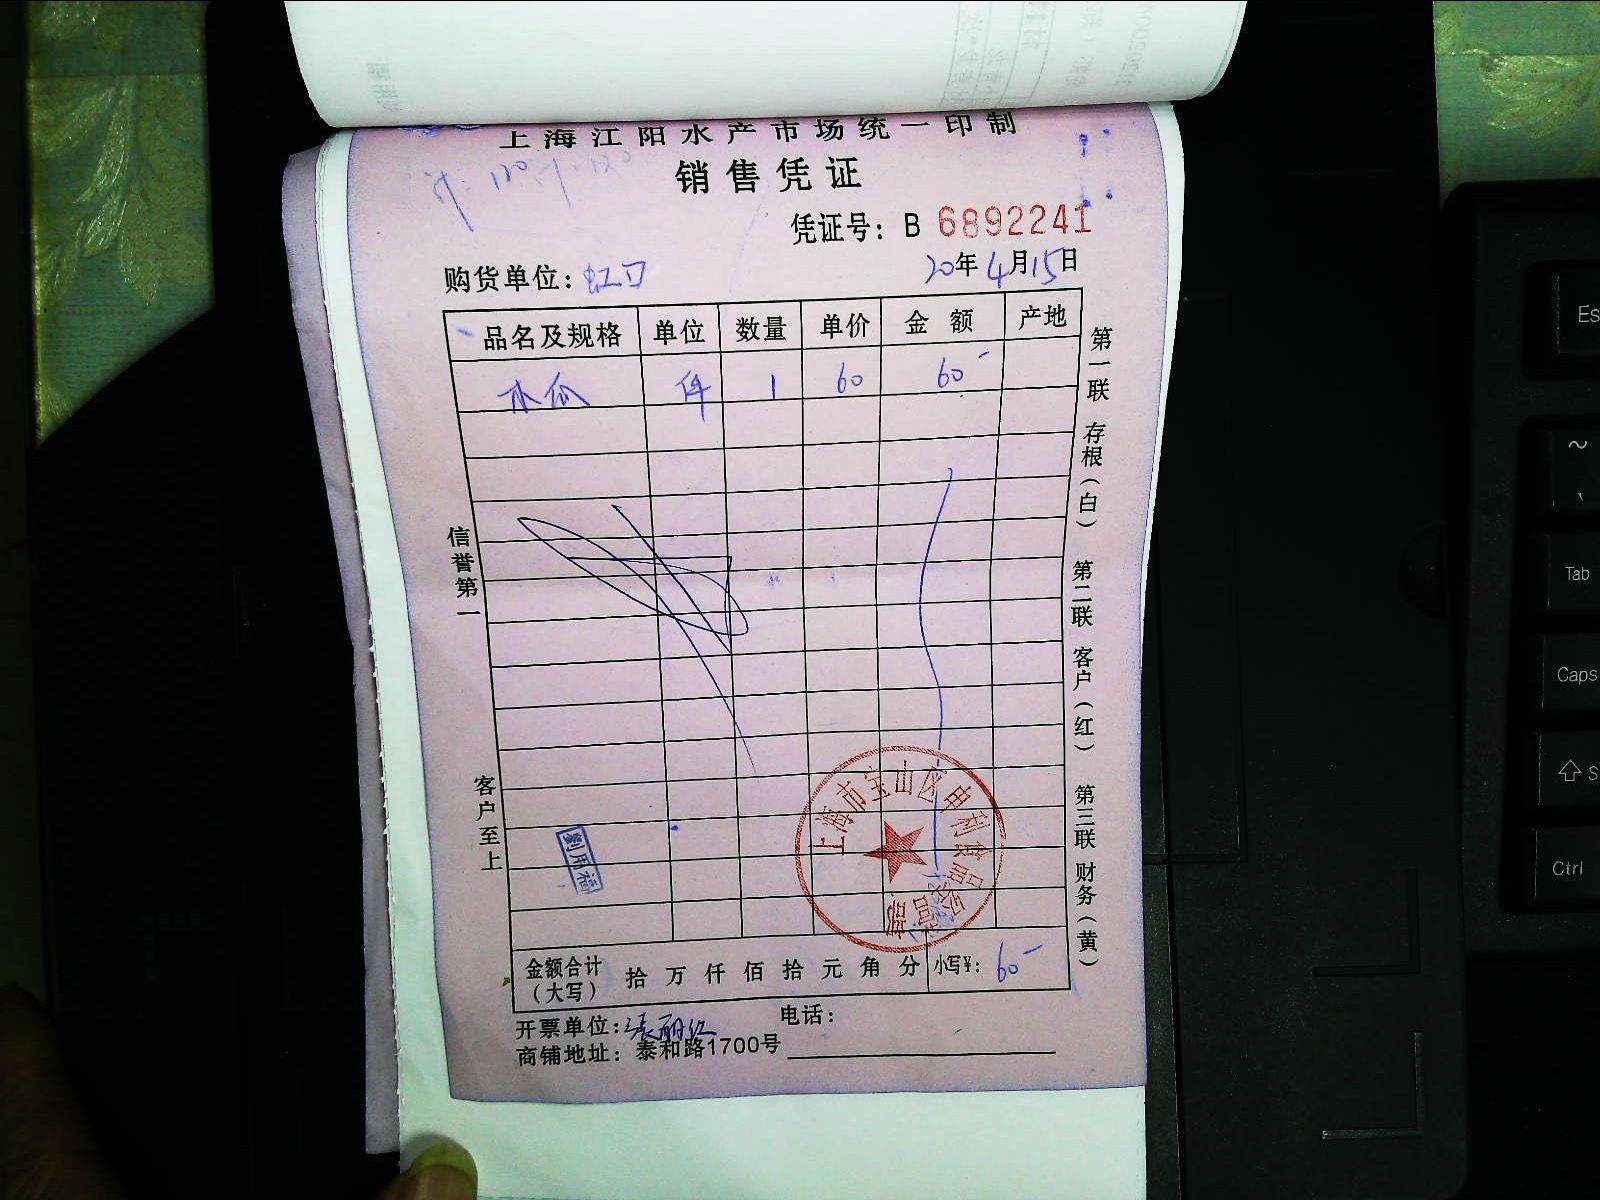 上海江阳水产市场统一印制
销售凭证
凭证号：B 6892241
购货单位：虹口 20年4月15日
品名及规格 单位 数量 单价 金额 产地
木瓜 件 1 60 60
信誉第一
客户至上
第一联 存根（白） 第二联 客户（红） 第三联 财务（黄）
上海市宝山区
劉用福
金额合计（大写） 拾 万 仟 佰 拾 元 角 分 小写¥：60
开票单位：张丽红 电话：
商铺地址：泰和路1700号
Es
~
Tab
Caps
S
Ctrl